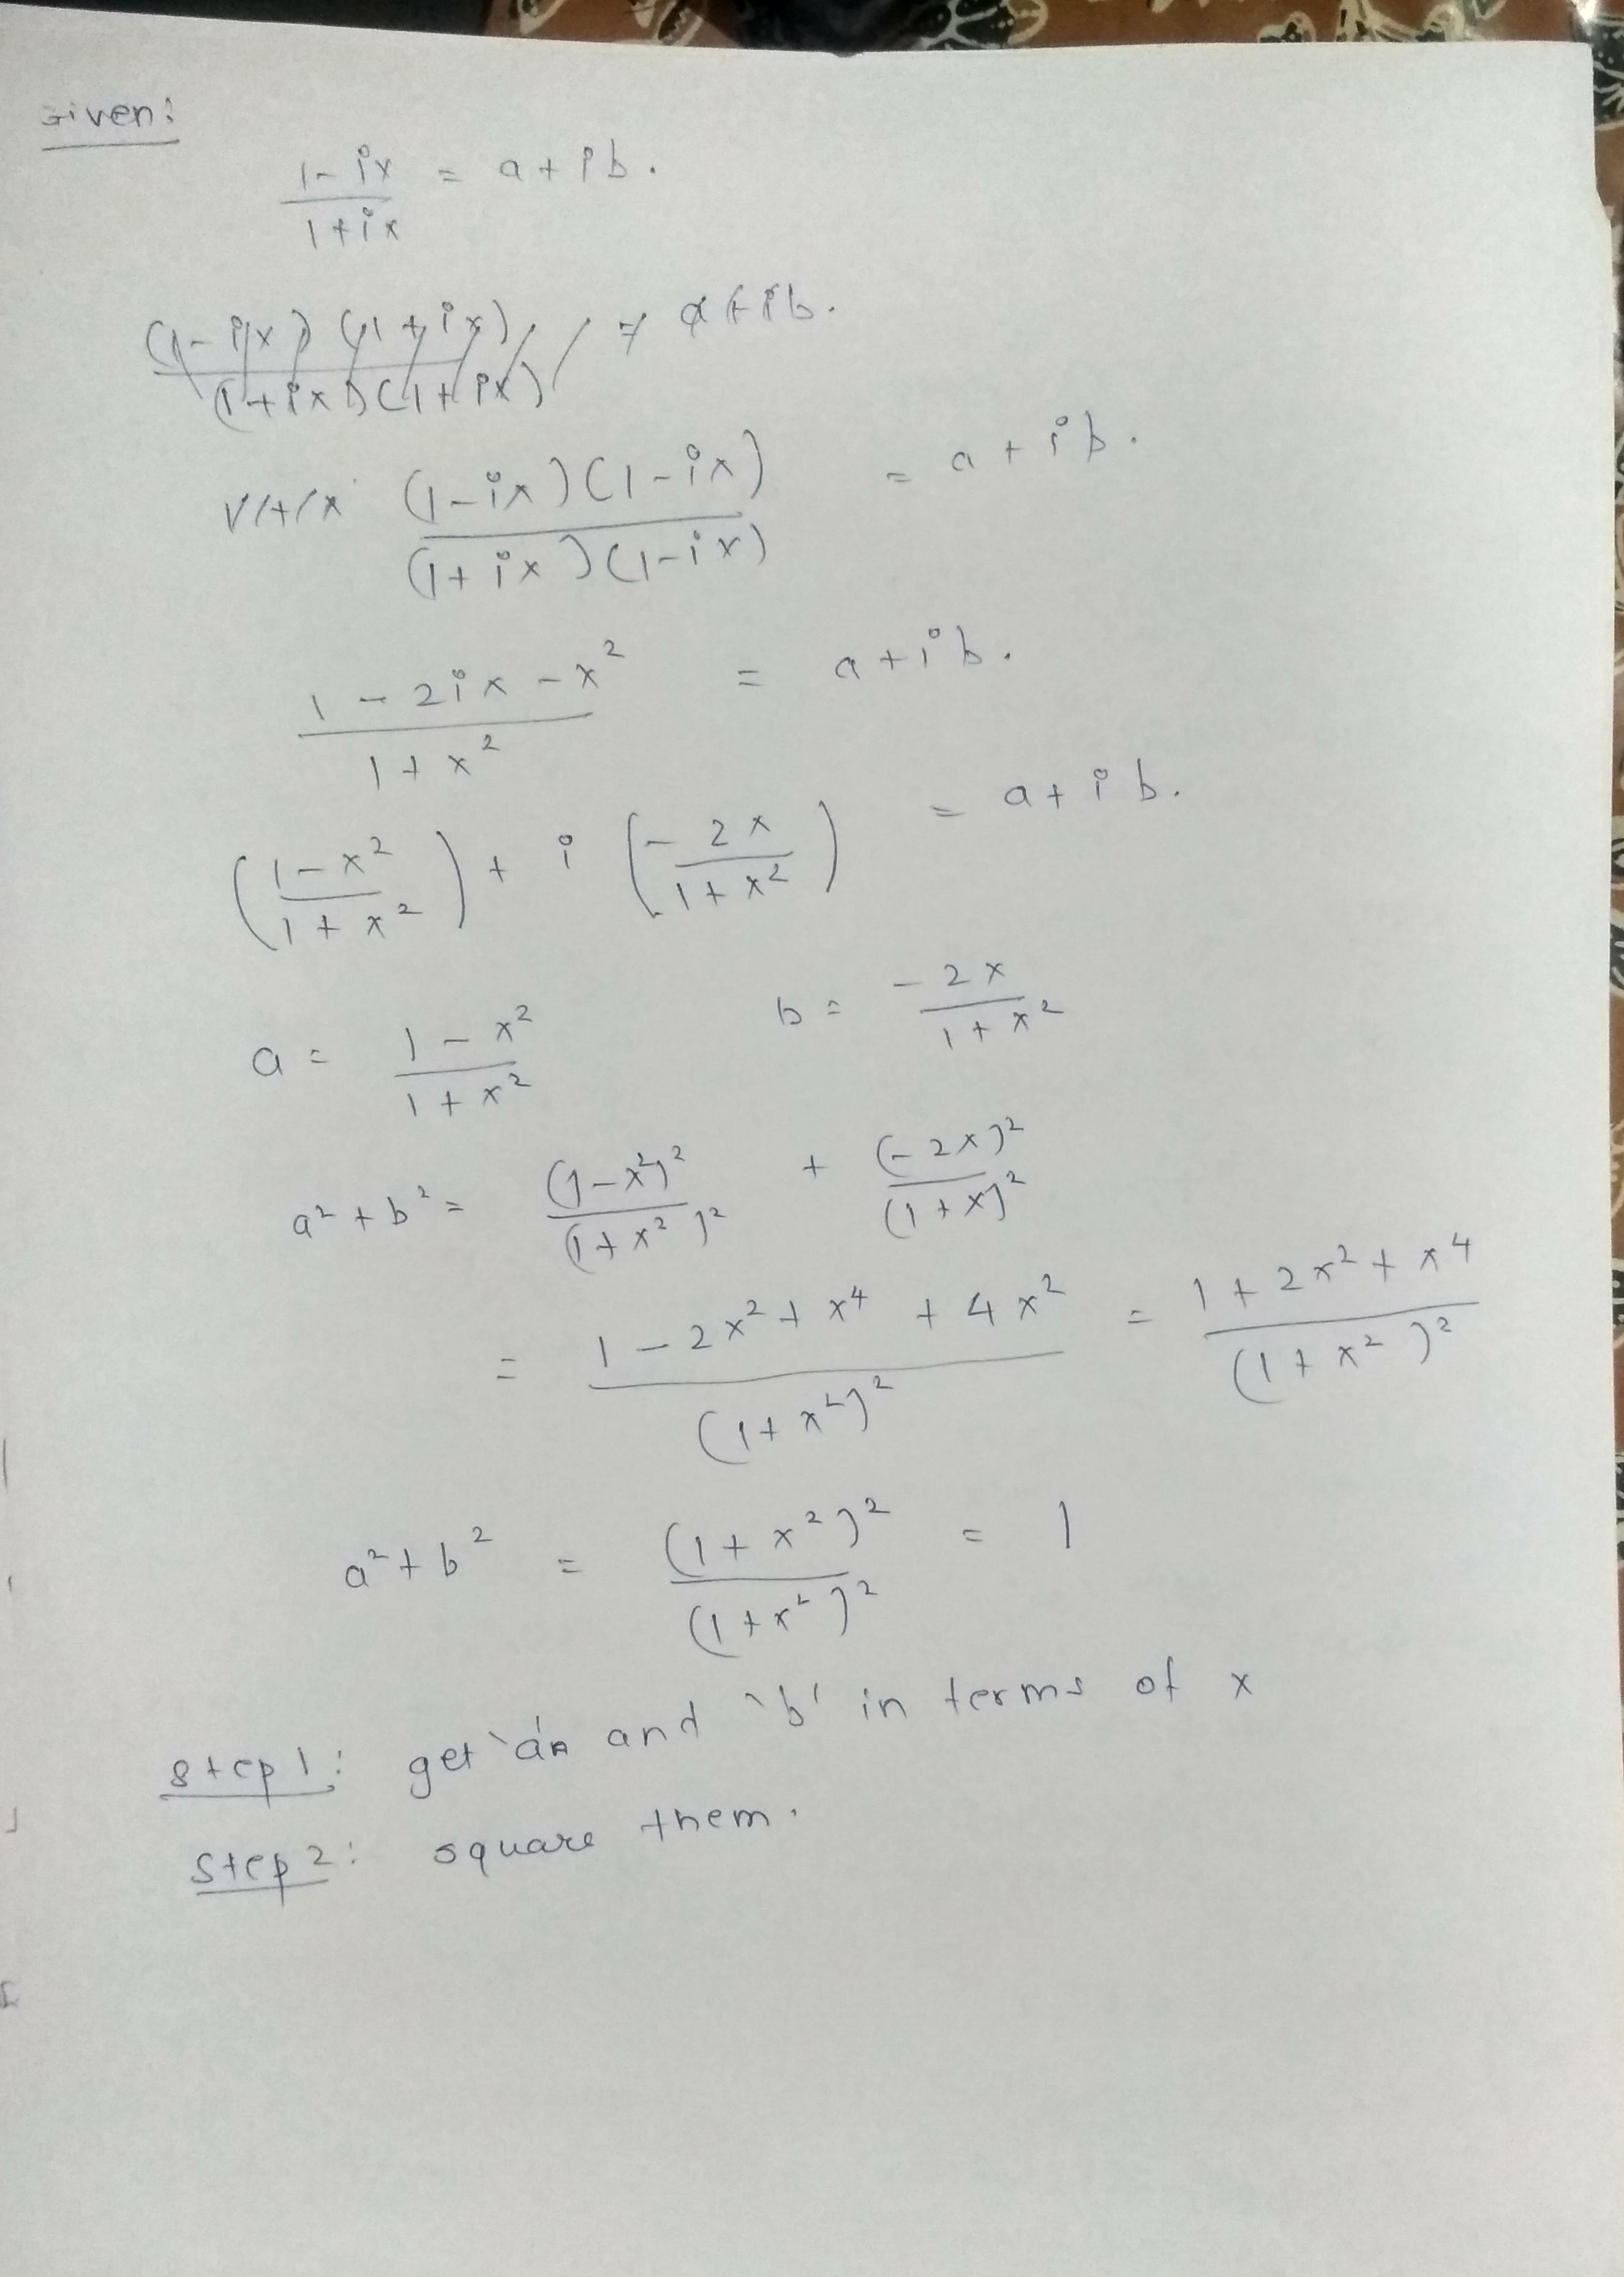 Given:
1-ix/1+ix = a+ib.
(1-ix)(1+ix)/(1+ix)(1+ix) = a+ib.
(1-ix)(1-ix)/(1+ix)(1-ix) = a+ib.
1-2ix-x²/1+x² = a+ib.
(1-x²/1+x²) + i(-2x/1+x²) = a+ib.
a = 1-x²/1+x² b = -2x/1+x²
a²+b² = (1-x²)²/(1+x²)² + (-2x)²/(1+x)²
= 1-2x²+x⁴+4x²/(1+x²)² = 1+2x²+x⁴/(1+x²)²
a²+b² = (1+x²)²/(1+x²)² = 1
step1: get 'a' and 'b' in terms of x
Step2: square them.